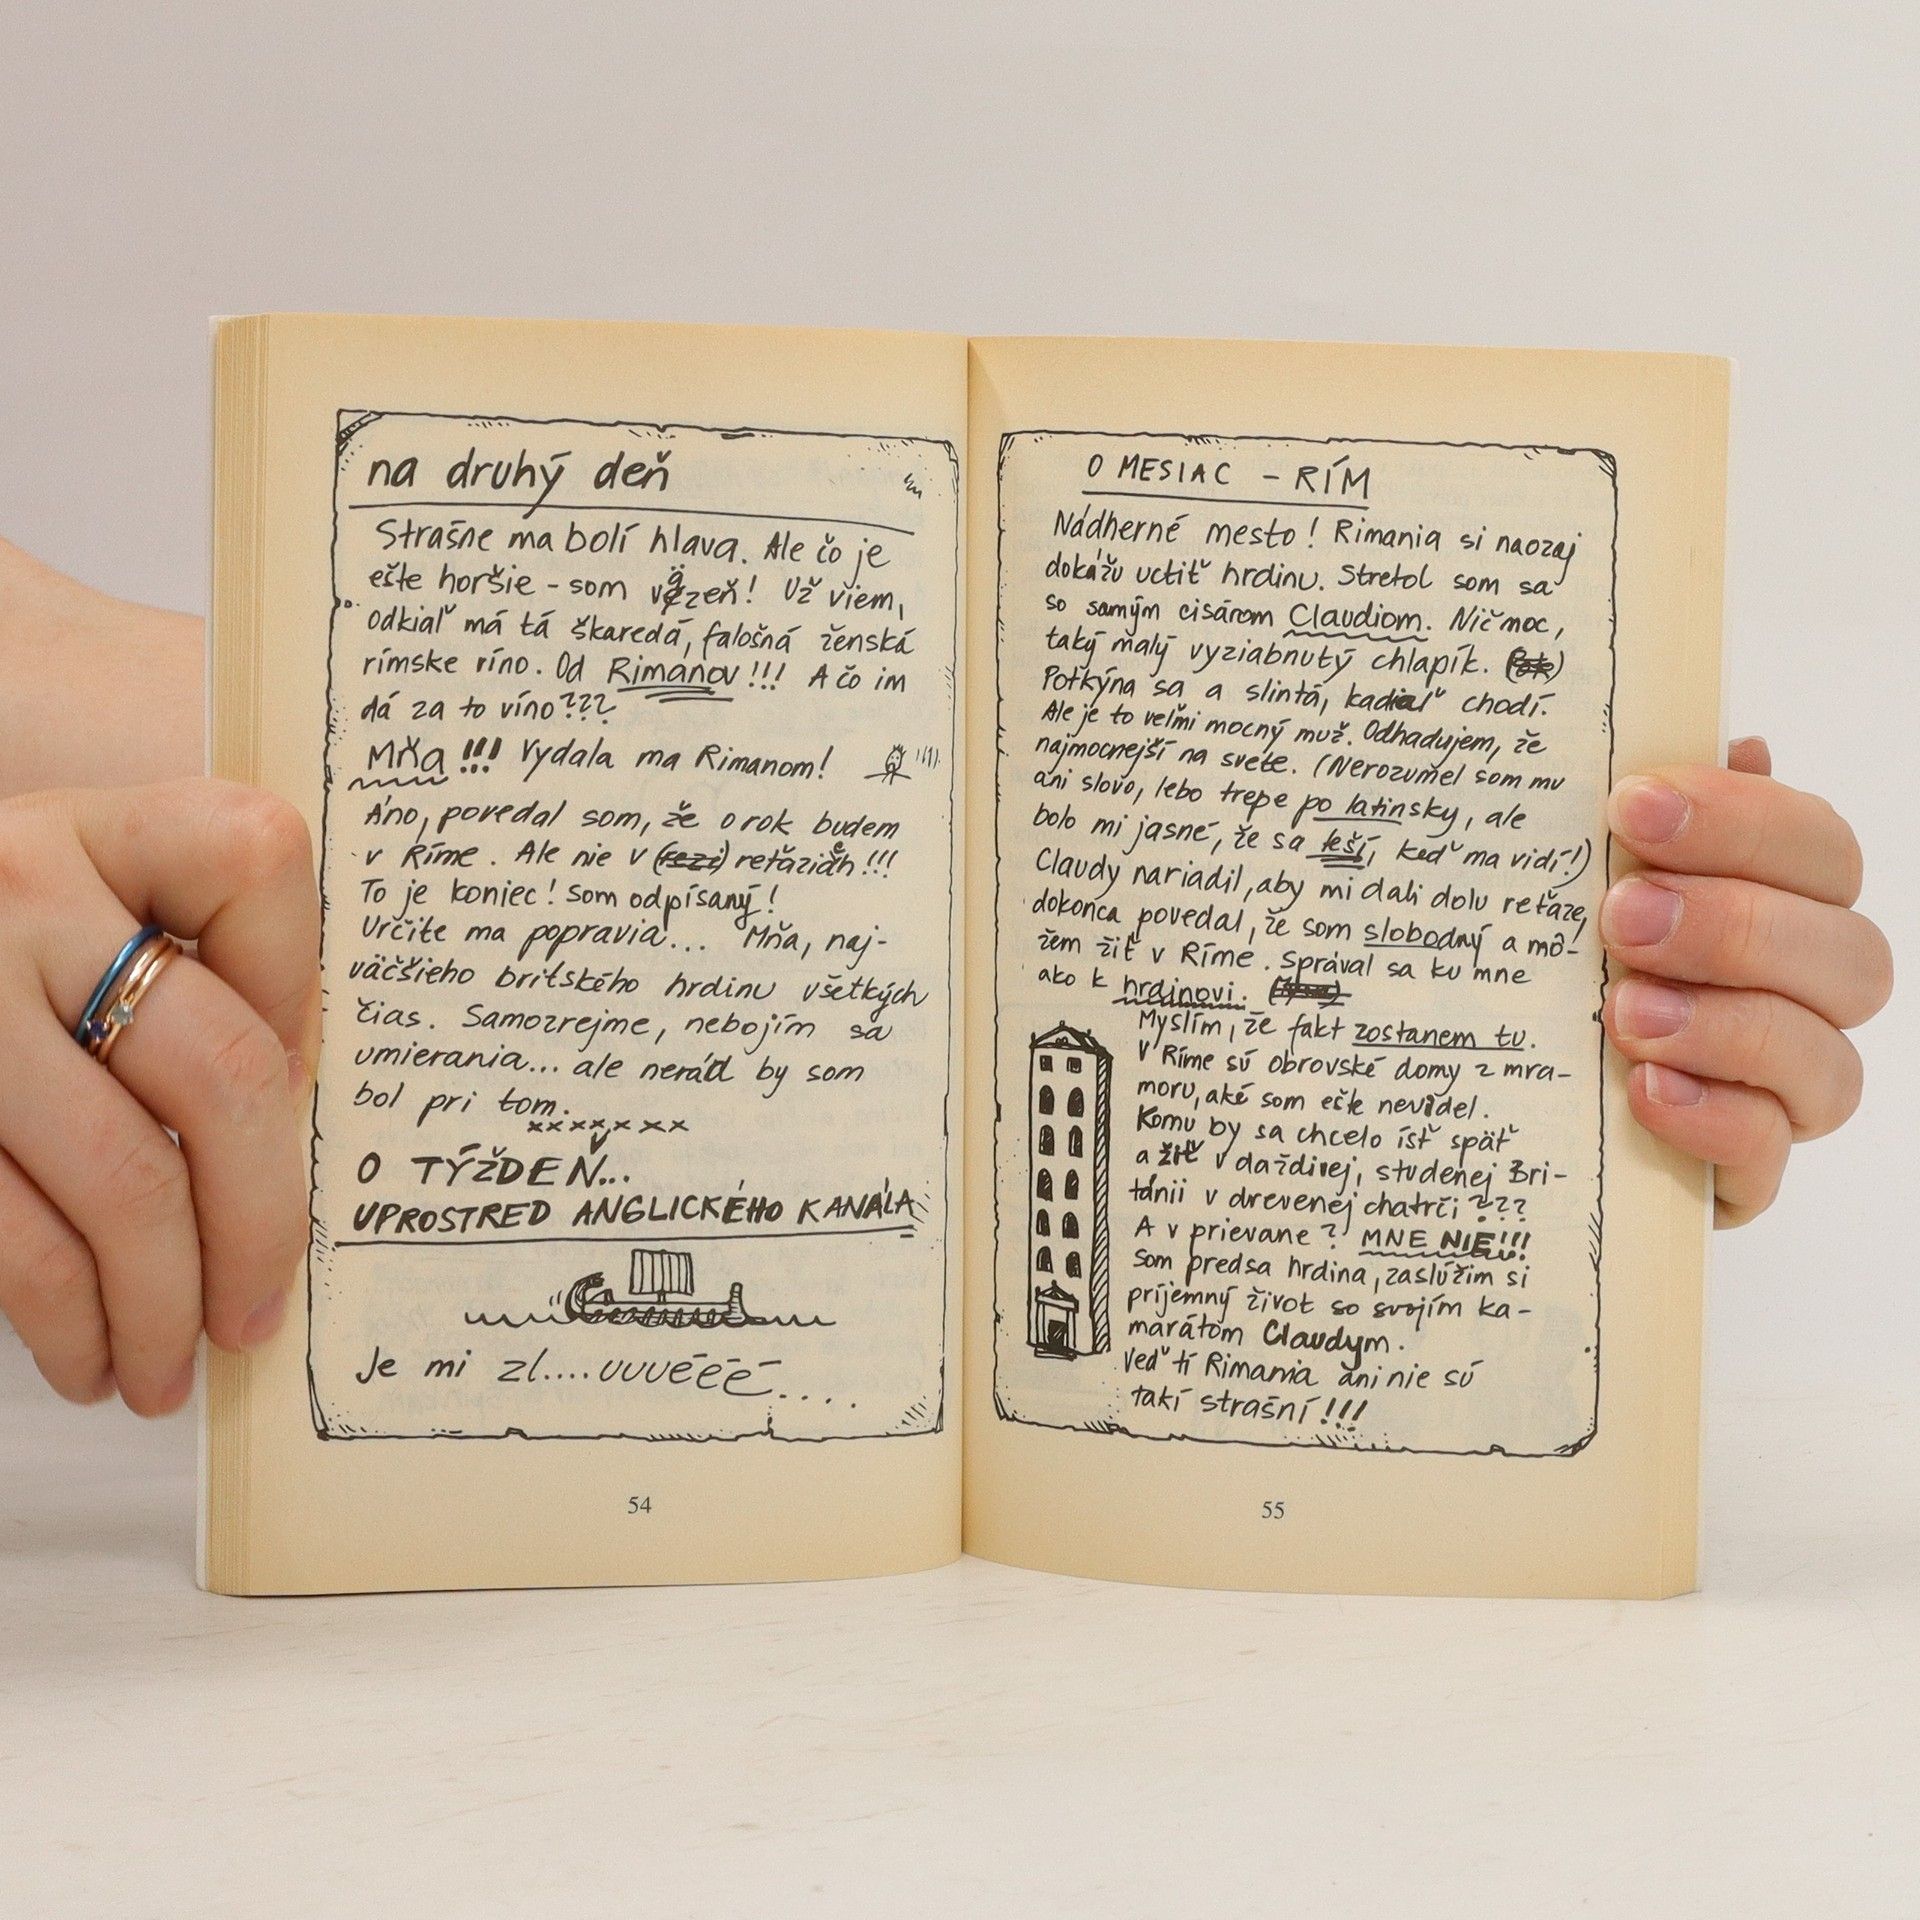 na druhý deň
Strašne ma bolí hlava. Ale čo je
ešte horšie - som väzeň! Už viem,
odkiaľ má tá škaredá, falošná ženská
rímske víno. Od Rimanov!!! A čo im
dá za to víno???
Mňa!!! Vydala ma Rimanom!
Áno, povedal som, že o rok budem
v Ríme. Ale nie v (rezi) reťaziach!!!
To je koniec! Som odpísaný!
Určite ma popravia... Mňa, naj-
väčšieho britského hrdinu všetkých
čias. Samozrejme, nebojím sa
umierania... ale nerád by som
bol pri tom.
xxxxxxx
O TÝŽDEŇ...
UPROSTRED ANGLICKÉHO KANÁLA
Je mi zl....uuuééé....
54
O MESIAC - RÍM
Nádherné mesto! Rimania si naozaj
dokážu uctiť hrdinu. Stretol som sa
so samým cisárom Claudiom. Nič moc,
taký malý vyziabnutý chlapík.
Potkýna sa a slintá, kadiaľ chodí.
Ale je to veľmi mocný muž. Odhadujem, že
najmocnejší na svete. (Nerozumel som mu
ani slovo, lebo trepe po latinsky, ale
bolo mi jasné, že sa teší, keď ma vidí!)
Claudy nariadil, aby mi dali dolu reťaze,
dokonca povedal, že som slobodný a mô-
žem žiť v Ríme. Správal sa ku mne
ako k hrdinovi.
Myslím, že fakt zostanem tu.
V Ríme sú obrovské domy z mra-
moru, aké som ešte nevidel.
Komu by sa chcelo ísť späť
a žiť v daždivej, studenej Bri-
tánii v drevenej chatrči???
A v prievane? MNE NIE!!!
Som predsa hrdina, zaslúžim si
príjemný život so svojím ka-
marátom Claudym.
Veď tí Rimania ani nie sú
takí strašní!!!
55